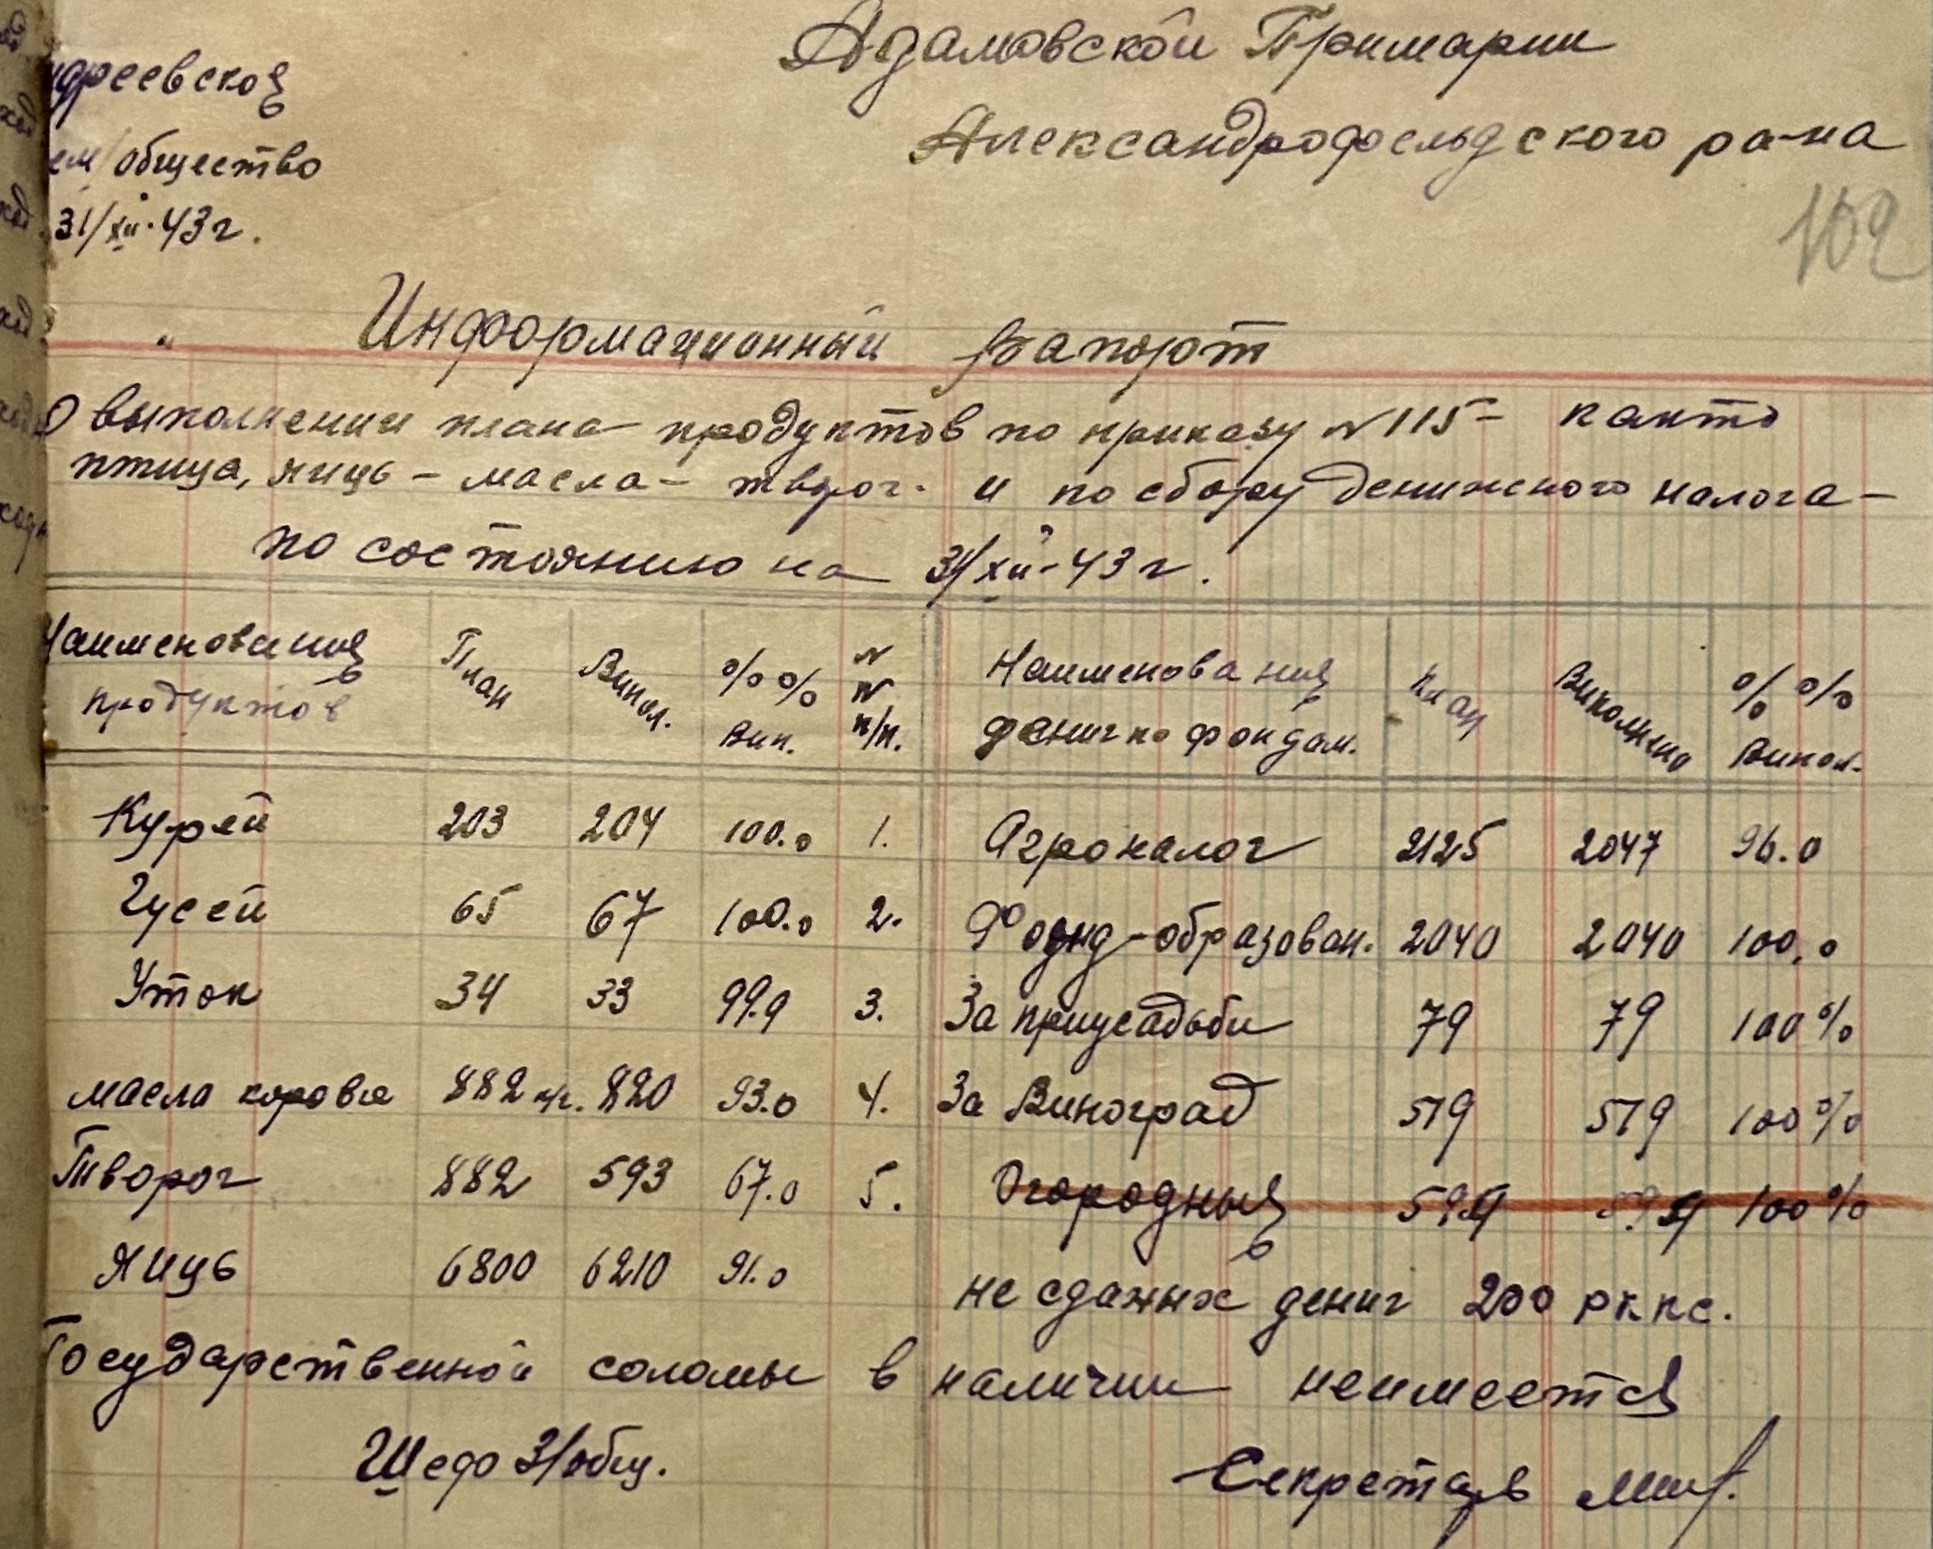 Адамовской Примарии
Александрофельдского ра-на
дреевская
зем/общество
31/XII-43 г.
102
Информационный Рапорт
О выполнении плана продуктов по приказу № 115 - както
птица, яиць - масла - творог. и по сбору денижного налога -
по состоянию на 31/XII-43 г.
Наименования продуктов | План | Випол. | %% Вип. | N N п/п. | Наименования дениг по фондам. | План | Виполнено | %% Випол.
Курей 203 204 100.0 1. Агроналог 2125 2047 96.0
Гусей 65 67 100.0 2. Фонд-образован. 2040 2040 100,0
Уток 34 33 99.9 3. За приусадьби 79 79 100%
масла коровье 882 кг. 820 93.0 4. За Виноград 519 519 100%
Творог 882 593 67.0 5. Огородныя 100%
Яиць 6800 6210 91.0
не сданых дениг 200 рккс.
Государственной соломы в наличии неимеется
Шефо З/общ. Секретарь